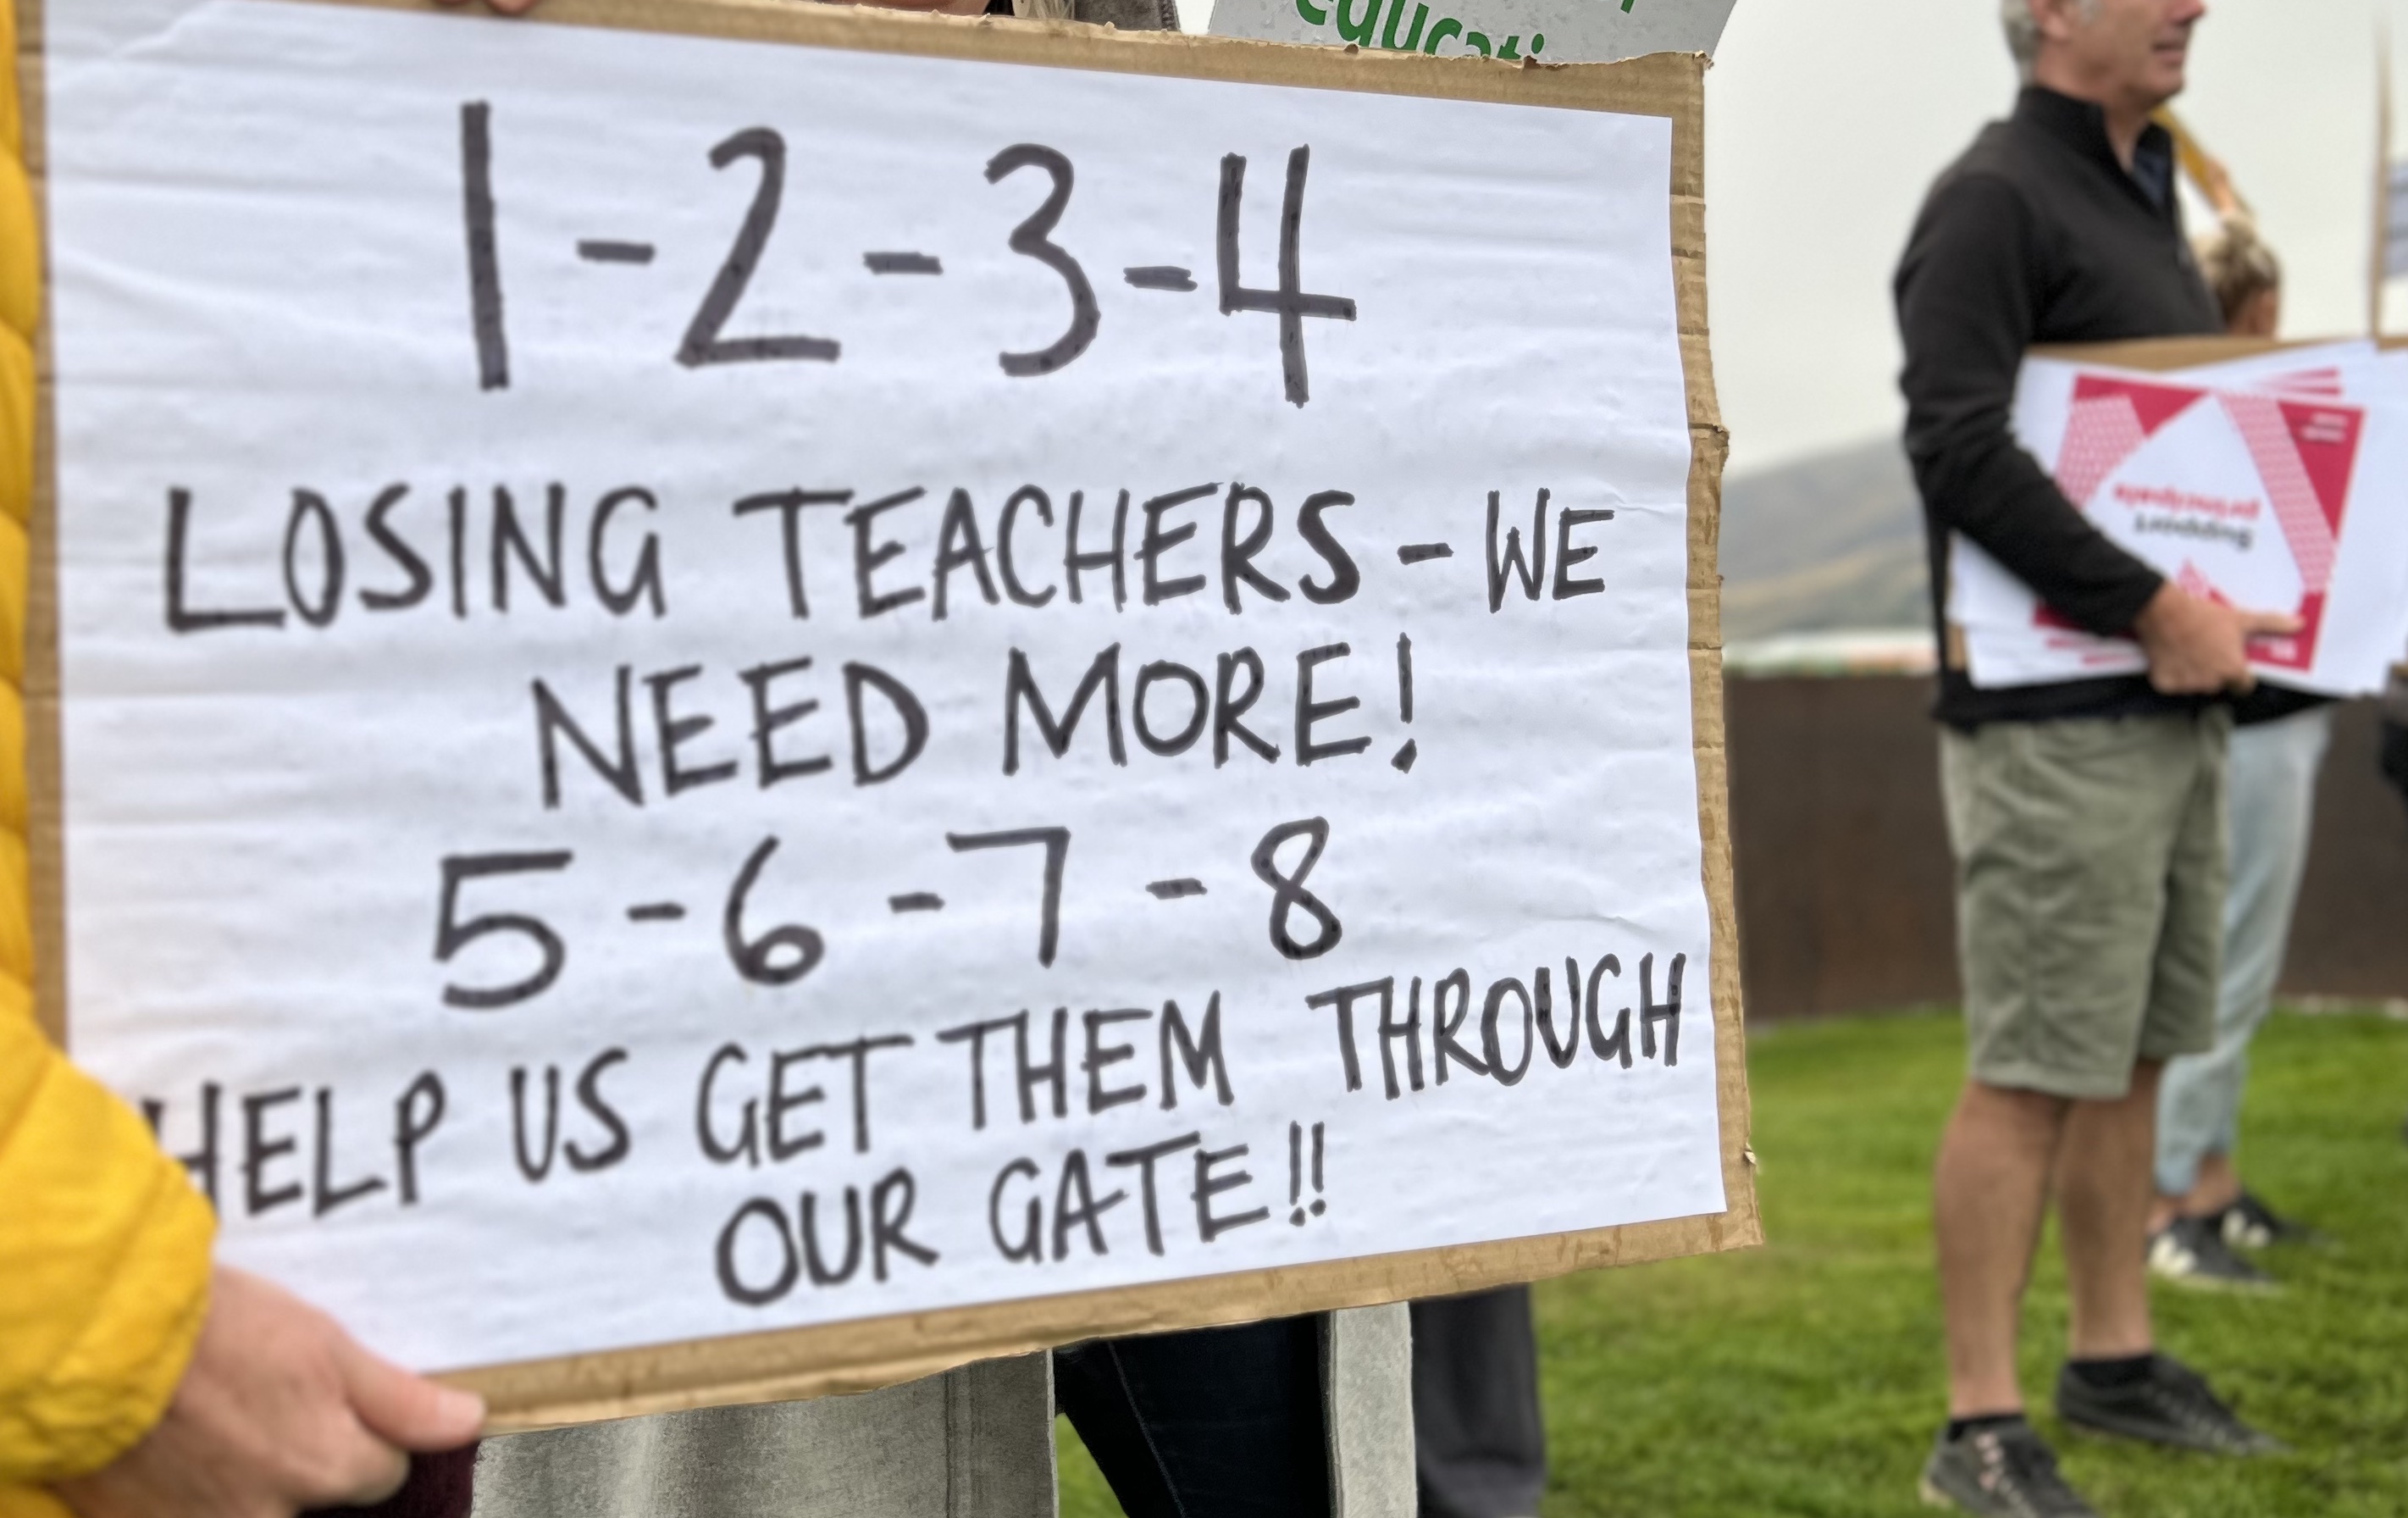 educati
1-2-3-4
LOSING TEACHERS - WE
NEED MORE!
5-6-7-8
HELP US GET THEM THROUGH
OUR GATE!!
Support
principals